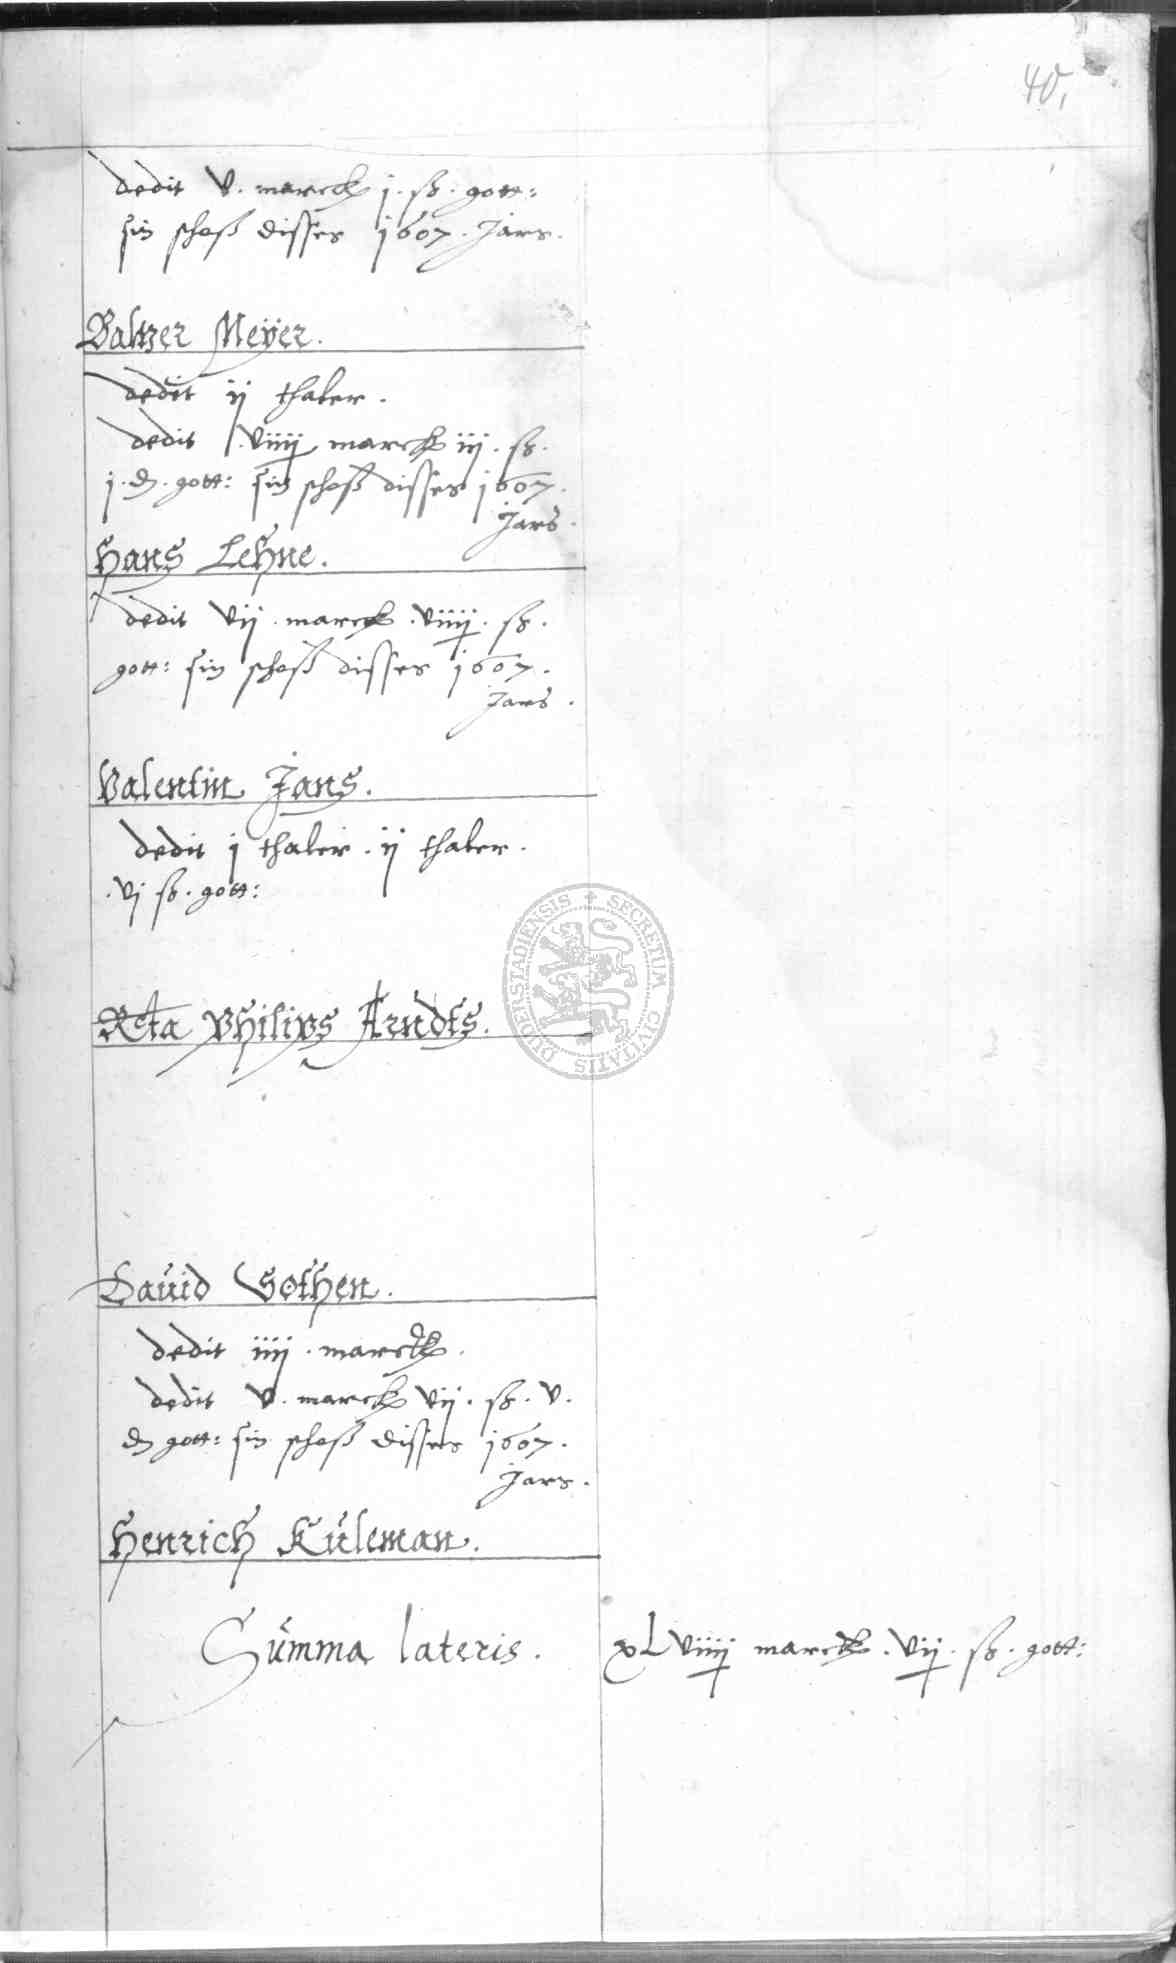 40,
dedit v. marck j. ß. gott:
sin schoß disses 1607. Jars.
Baltzer Meÿer.
dedit ij thaler.
dedit viiij marck iij. ß.
j. d. gott: sin schoß disses 1607.
Jars.
Hans Lehne.
dedit vij. marck. viiij. ß.
gott: sin schoß disses 1607.
Jars.
Valentin Jans.
dedit j thaler. ij thaler.
.vj ß. gott:
Rcta Philips Arndts.
SECRETUM CIVITATIS DUDERSTADIENSIS
Dauid Gothen.
dedit iiij. marck.
dedit v. marck vij. ß. v.
d gott: sin schoß disses 1607.
Jars.
Henrich Kúleman.
Súmma lateris. xLviiij marck. vij. ß. gott: